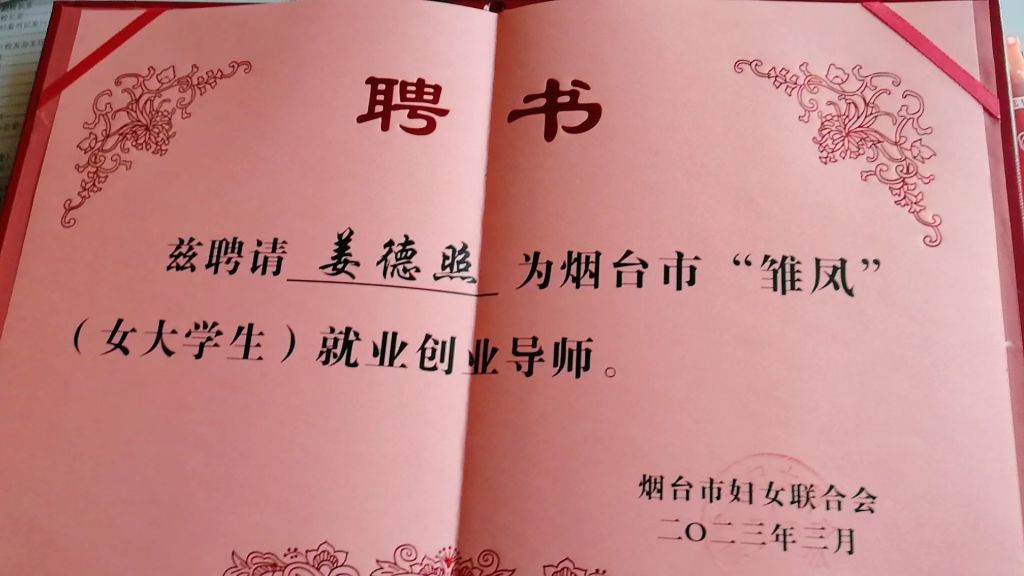 聘书
兹聘请 姜德照 为烟台市“雏凤”
（女大学生）就业创业导师。
烟台市妇女联合会
二〇二三年三月